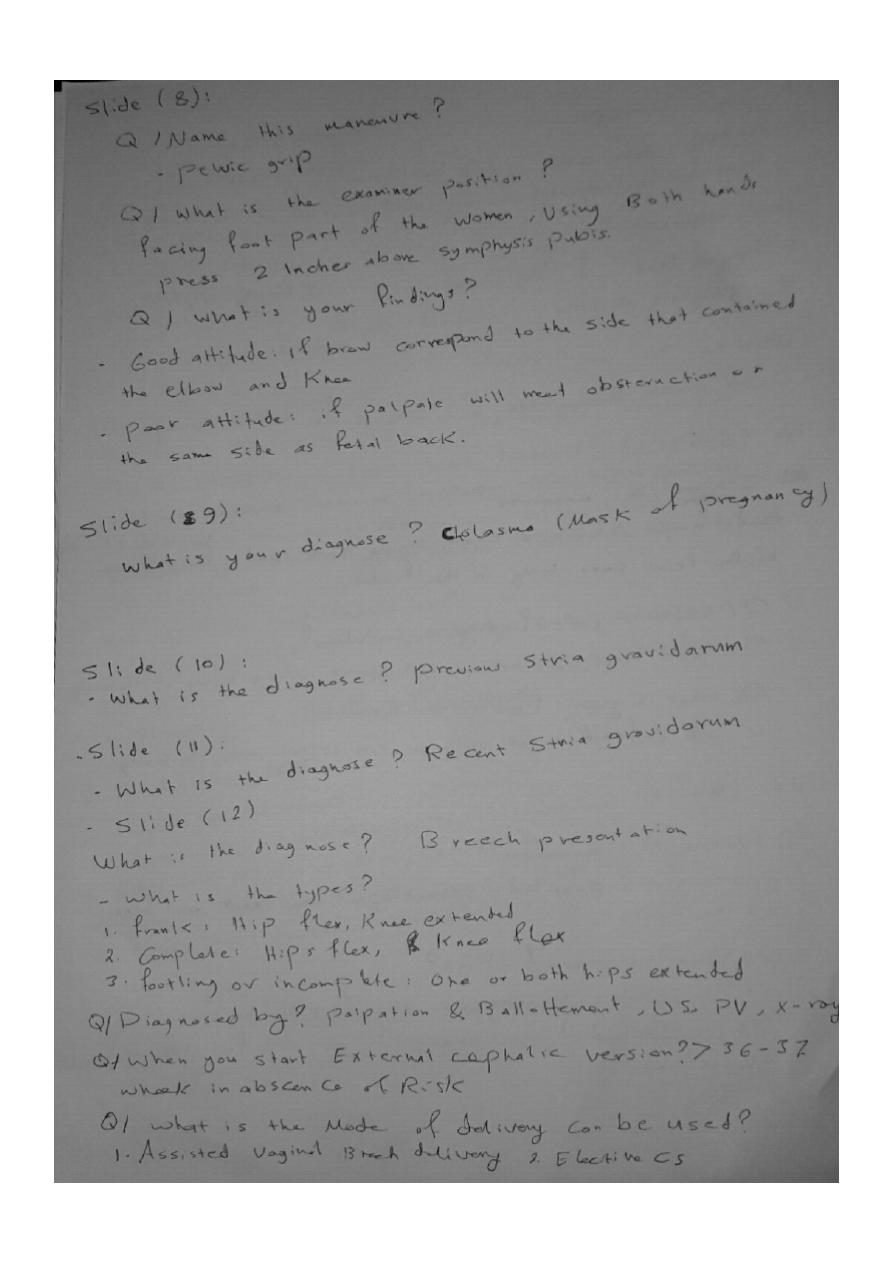 Slide (8):
Q / Name this maneuvre?
- pelvic grip
Q / what is the examiner position?
facing foot part of the women, Using Both hands
press 2 Inches above symphysis pubis.
Q / what is your findings?
- Good attitude: if brow correspond to the side that contained
the elbow and Knee
- poor attitude: if palpate will meet obsteruction on
the same side as fetal back.
Slide (9):
What is your diagnose? Cholasma (Mask of pregnancy)
Slide (10):
- What is the diagnose? previous Stria gravidarum
- Slide (11):
- What is the diagnose? Recent Stria gravidarum
- Slide (12)
What is the diagnose? Breech presentation
- What is the types?
1. frank: Hip flex, Knee extended
2. Complete: Hips flex, Knee flex
3. footling or incomplete: One or both hips extended
Q/ Diagnosed by? palpation & Ballottement, US, PV, x-ray
Q/ When you start External cephalic version? > 36-37
wheek in abscence of Risk
Q/ what is the Mode of delivery can be used?
1. Assisted vaginal Breech delivery 2. Elective CS